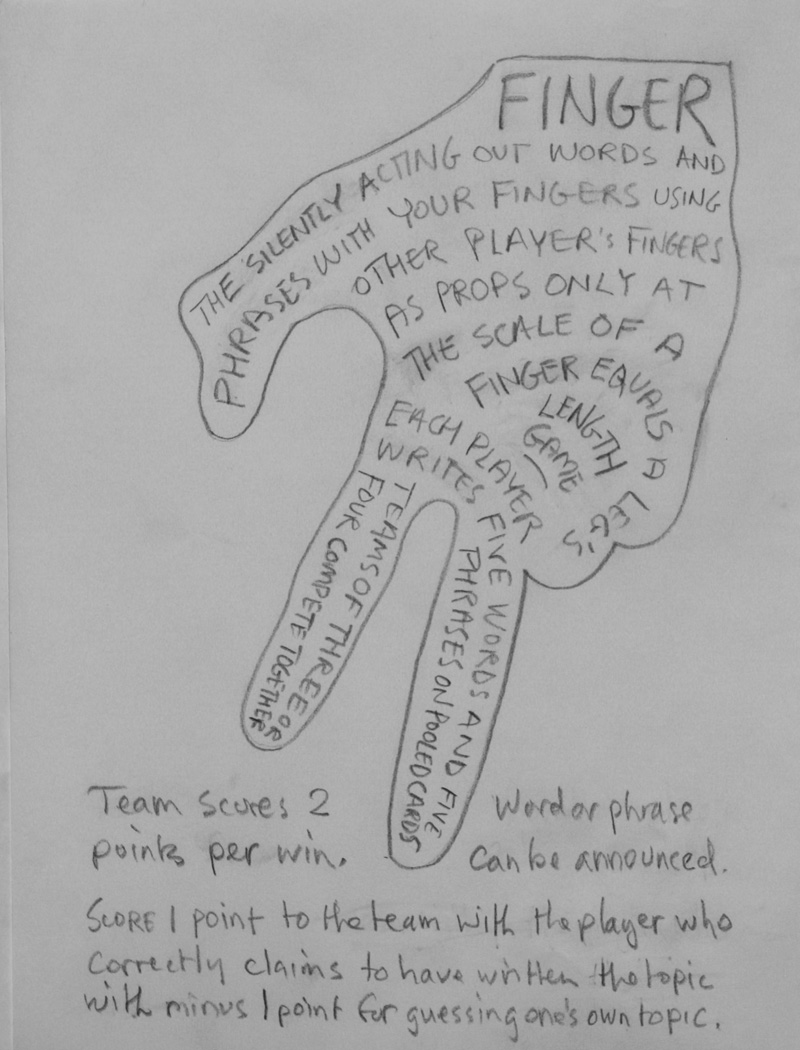 FINGER
THE SILENTLY ACTING OUT WORDS AND
PHRASES WITH YOUR FINGERS USING
OTHER PLAYER'S FINGERS
AS PROPS ONLY AT
THE SCALE OF A
FINGER EQUALS A LEG'S
LENGTH
GAME
EACH PLAYER
WRITES FIVE WORDS AND FIVE
PHRASES ON POOLED CARDS
TEAMS OF THREE OR
FOUR COMPETE TOGETHER
Team Scores 2
points per win.
Word or phrase
can be announced.
SCORE 1 point to the team with the player who
correctly claims to have written the topic
with minus 1 point for guessing one's own topic.